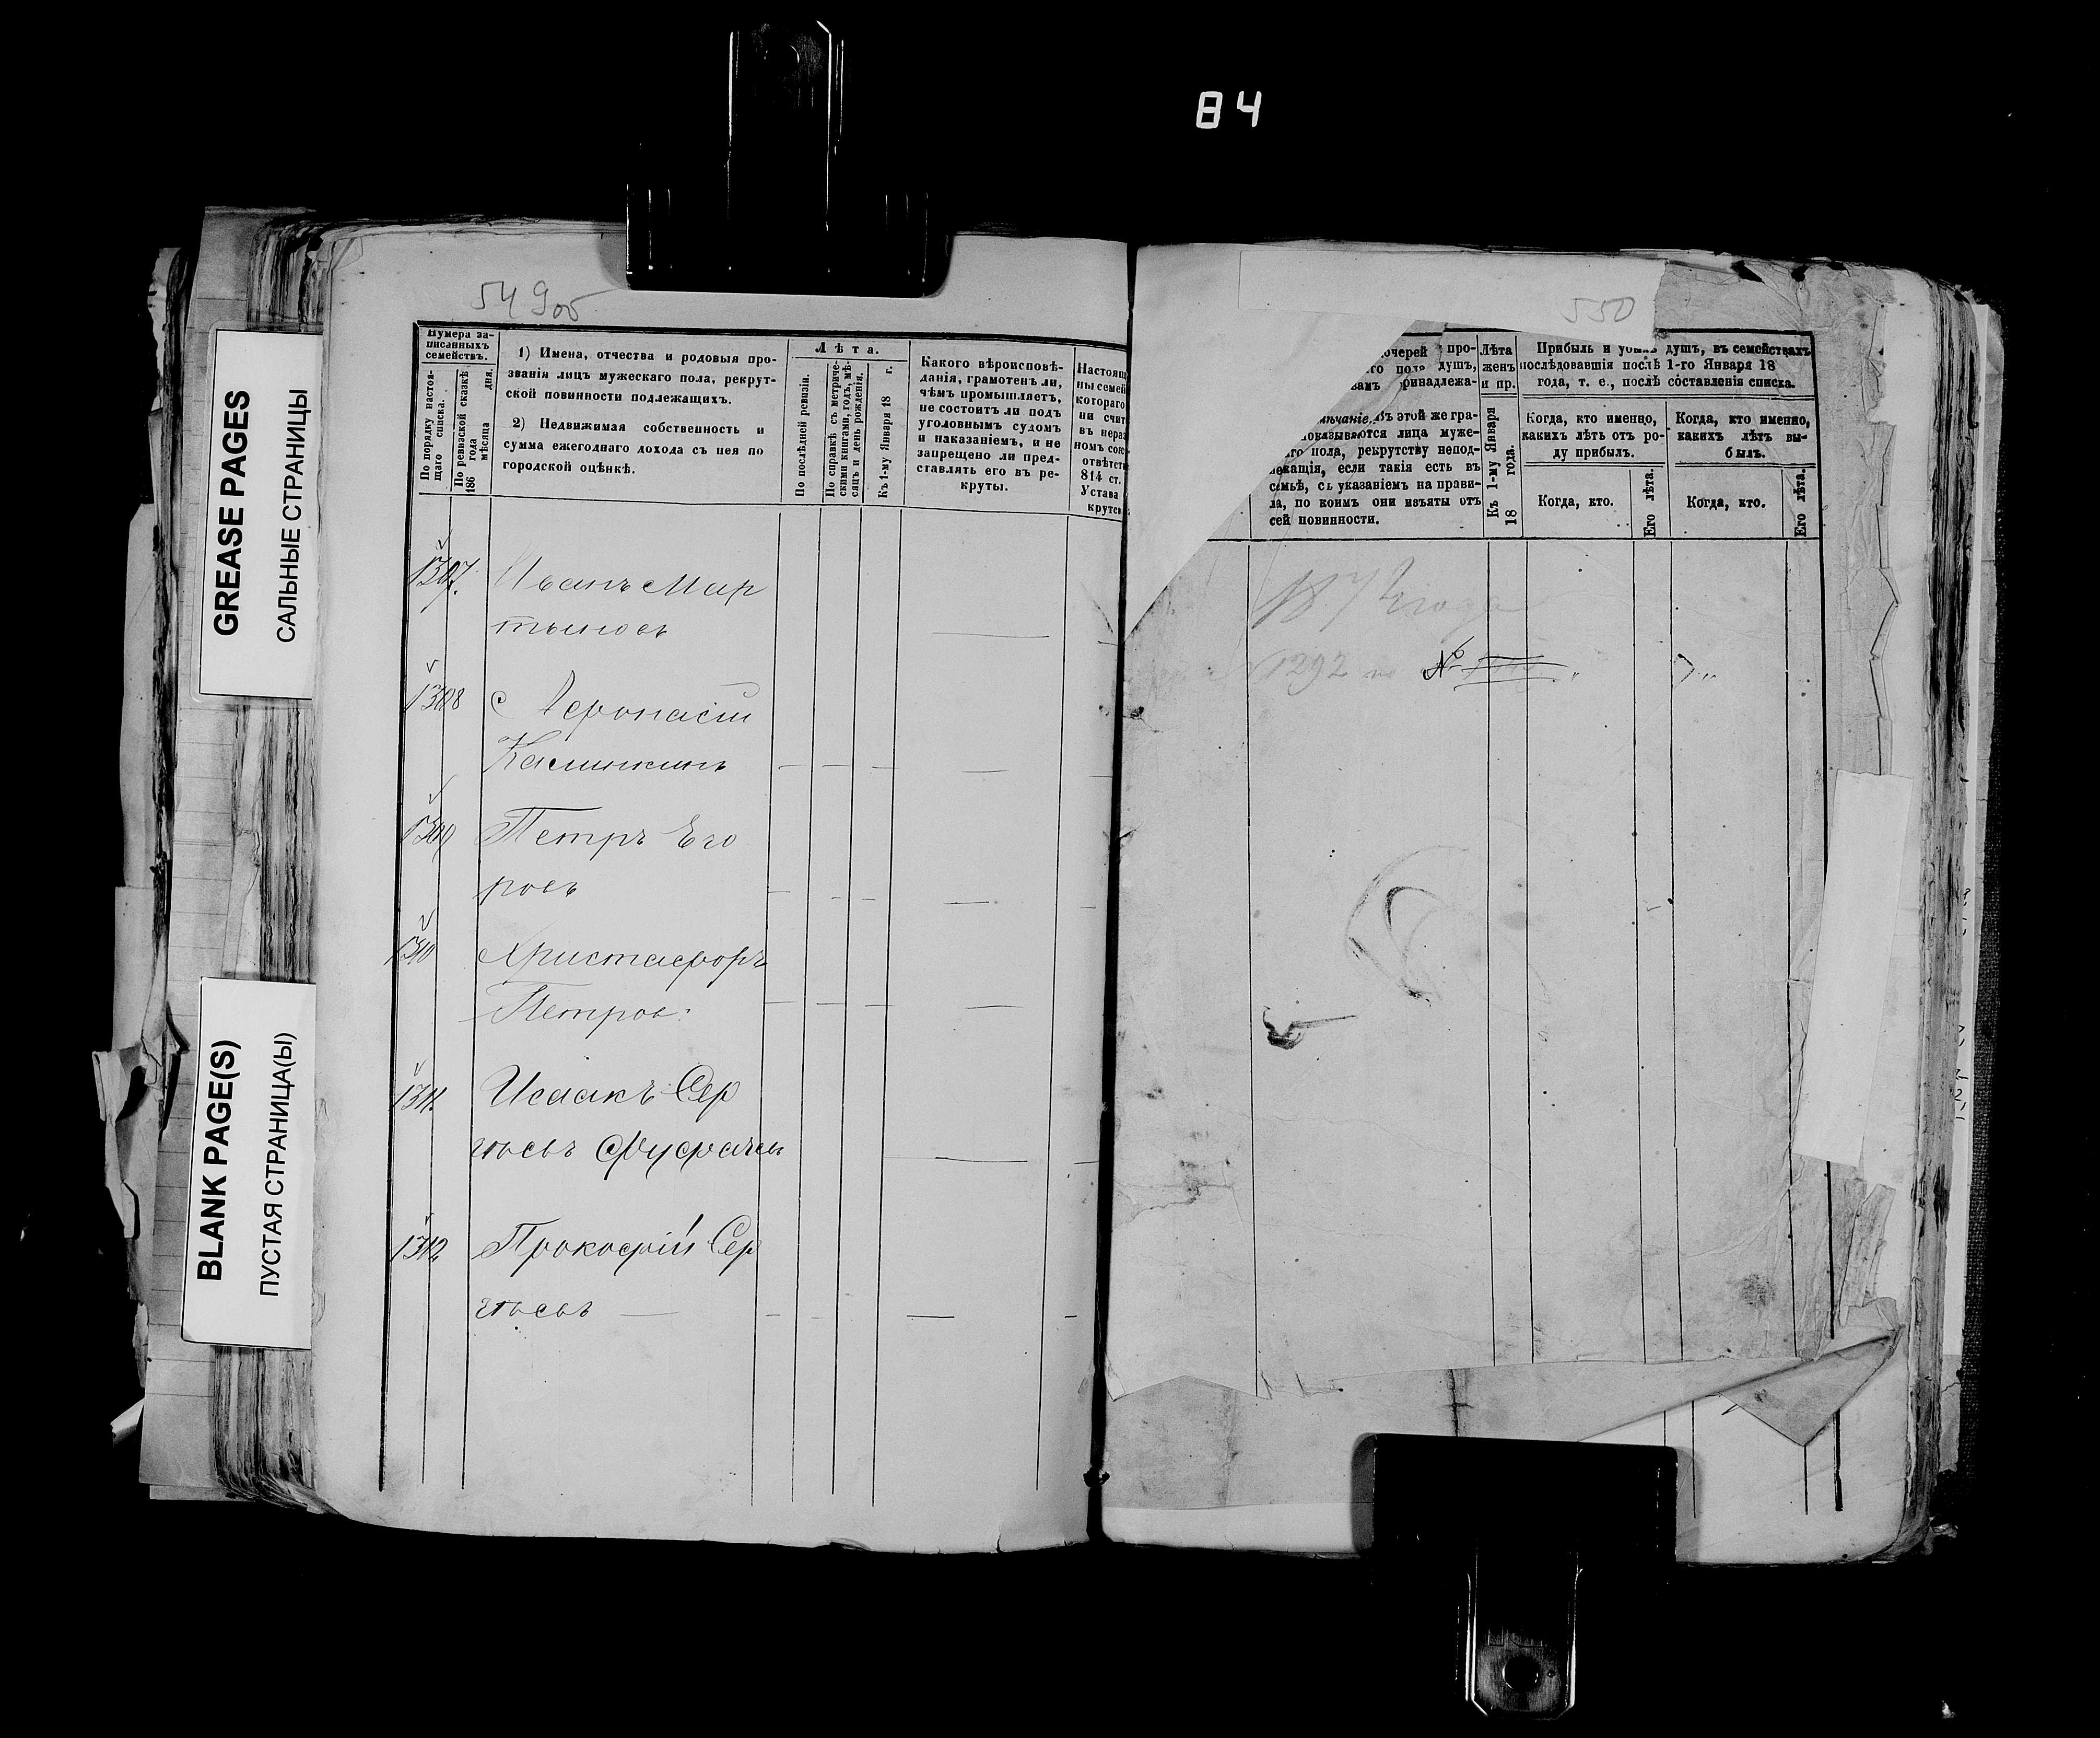 84
GREASE PAGES
САЛЬНЫЕ СТРАНИЦЫ
BLANK PAGE(S)
ПУСТАЯ СТРАНИЦА(Ы)
549об
Нумера за-
писанныхъ
семействъ.
По порядку настоя-
щаго списка.
По ревизской сказкѣ
186 года
мѣсяца дня.
1) Имена, отчества и родовыя про-
званія лицъ мужескаго пола, рекрут-
ской повинности подлежащихъ.
2) Недвижимая собственность и
сумма ежегоднаго дохода съ нея по
городской оцѣнкѣ.
Лѣта.
По послѣдней ревизіи.
По справкѣ съ метриче-
скими книгами, годъ, мѣ-
сяцъ и день рожденія.
Къ 1-му Января 18 г.
Какого вѣроисповѣ-
данія, грамотенъ ли,
чѣмъ промышляетъ,
не состоитъ ли подъ
уголовнымъ судомъ
и наказаніемъ, и не
запрещено ли пред-
ставлять его въ ре-
круты.
Настоящ
ны семей
котораго
ни счит
въ нераз
номъ сою
отвѣтст
814 ст.
Устава
крутск
1307. Иванъ Мар
тыновъ
1308 Афонасій
Калинкинъ
1309 Петръ Его
ровъ
1310 Христафоръ
Петров
1311. Исаакъ Сер
гѣевъ
1312 Прокофій Сер
гѣевъ
550
очерей про-
го пола душъ,
вамъ принадлежа-
чаніе. Въ этой же гра-
показываются лица муже-
го пола, рекрутству непод-
лежащія, если такія есть въ
семьѣ, съ указаніемъ на прави-
ла, по коимъ они изъяты отъ
сей повинности.
Лѣта
женъ
и пр.
Къ 1-му Января
18 года.
Прибыль и убыль душъ, въ семействахъ
послѣдовавшія послѣ 1-го Января 18
года, т. е., послѣ составленія списка.
Когда, кто именно,
какихъ лѣтъ отъ ро-
ду прибылъ.
Когда, кто именно,
какихъ лѣтъ вы-
былъ.
Когда, кто.
Его лѣта.
Когда, кто.
Его лѣта.
1872 года
1292 по №